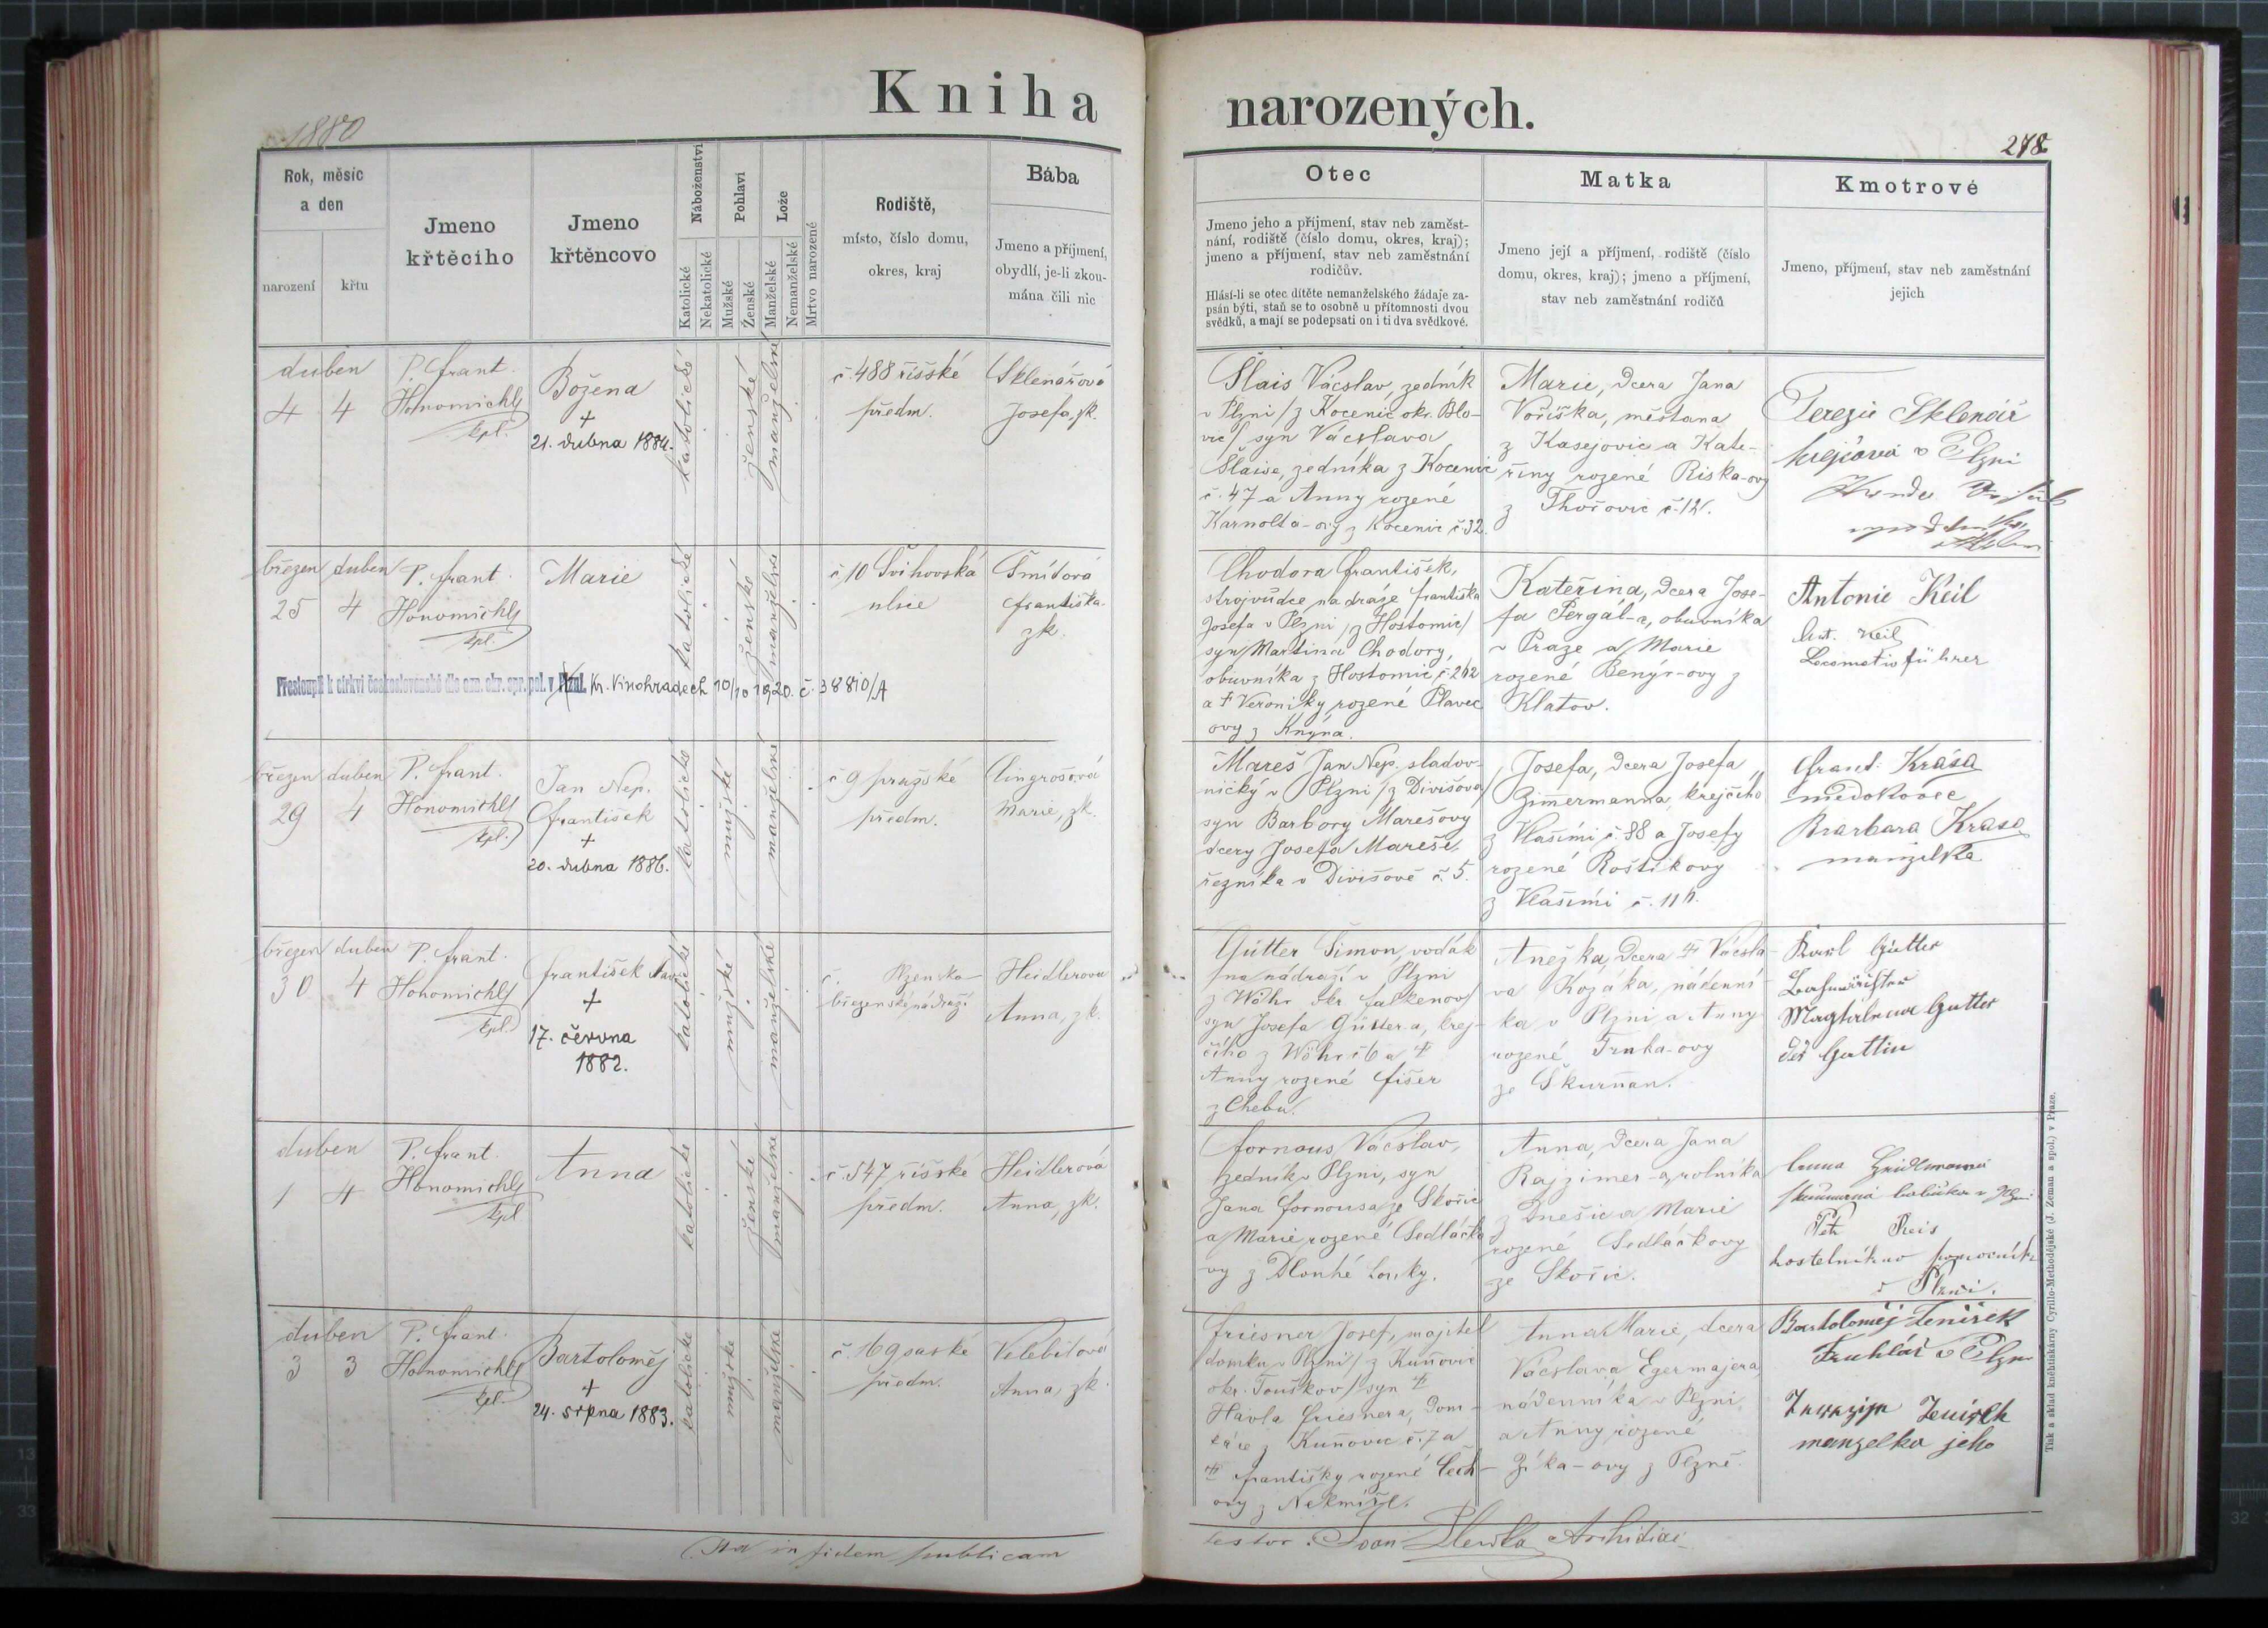 Kniha narozených.
1880
278
Rok, měsíc a den
narození
křtu
Jmeno křtěcího
Jmeno křtěncovo
Náboženství
Katolické
Nekatolické
Pohlaví
Mužské
Ženské
Lože
Manželské
Nemanželské
Mrtvo narozené
Rodiště,
místo, číslo domu,
okres, kraj
Bába
Jmeno a příjmení,
obydlí, je-li zkou-
mána čili nic
Otec
Jmeno jeho a příjmení, stav neb zaměst-
nání, rodiště (číslo domu, okres, kraj);
jmeno a příjmení, stav neb zaměstnání
rodičův.
Hlásí-li se otec dítěte nemanželského žádaje za-
psán býti, staň se to osobně u přítomnosti dvou
svědků, a mají se podepsati on i ti dva svědkové.
Matka
Jmeno její a příjmení, rodiště (číslo
domu, okres, kraj); jmeno a příjmení,
stav neb zaměstnání rodičů
Kmotrové
Jmeno, příjmení, stav neb zaměstnání
jejich
duben
4 4
P. Frant.
Honomichl
kpl.
Božena
+
21. dubna 1884.
katolické
ženské
manželské
č. 488 říšské
předm.
Sklenářová
Josefa, zk.
Šlais Vácslav, zedník
v Plzni /z Kocenic okr. Blo-
vic/ syn Vácslava
Šlaise, zedníka z Kocenic
č. 47 a Anny rozené
Karnolta-ovy z Kocenic č. 32.
Marie, dcera Jana
Voříška, měštana
z Kasejovic a Kate-
řiny rozené Riska-ovy
z Thořovic č. 12.
Terezie Sklenář
krejčová v Plzni
březen duben
25 4
P. Frant.
Honomichl
kpl.
Marie
katolické
ženské
manželské
č. 10 Švihovská
ulice
Šmídová
Františka
zk.
Přestoupil k církvi československé dle ozn. okr. spr. pol. v Plzni. Kr. Vinohradech 10/10 1920. č. 38810/A
Chodora František,
strojvůdce na dráze Františka
Josefa v Plzni /z Hostomic/
syn Martina Chodory,
obuvníka z Hostomic č. 202
a + Veroniky rozené Plavec
ovy z Knýna.
Kateřina, dcera Jose-
fa Pergál-a, obuvníka
v Praze a Marie
rozené Benýr-ovy z
Klatov.
Antonie Keil
Ant. Keil
Locomotivführer
březen duben
29 4
P. Frant.
Honomichl
kpl.
Jan Nep.
František
+
20. dubna 1886.
katolické
mužské
manželské
č. 9 pražské
předm.
Cingrošová
Marie, zk.
Mareš Jan Nep. sladov-
nický v Plzni /z Divišova/
syn Barbory Marešovy
dcery Josefa Mareše,
řezníka v Divišově č. 5.
Josefa, dcera Josefa
Zimermanna, krejčího
z Vlašimi č. 88 a Josefy
rozené Roštíkovy
z Vlašimi č. 114.
Frant. Krása
Barbara Krasa
manzelka
březen duben
30 4
P. Frant.
Honomichl
kpl.
František
+
17. června
1882.
katolické
mužské
manželské
č. Plzensko
březenské nádraží
Heidlerova
Anna, zk.
Gütter Šimon, vodák
na nádraží v Plzni
z Wöhr okr. Falkenov/
syn Josefa Gütter-a, krej-
čího z Wöhr č. 6 a +
Anny rozené Fišer
z Chebu.
Anežka, dcera + Vácsla-
va Kojáka, nádenní-
ka v Plzni a Anny
rozené Trnka-ovy
ze Skurňan.
Karl Gütter
Bahnwächter
Magdalena Gutter
des Gattin
duben
1 4
P. Frant.
Honomichl
kpl.
Anna
katolické
ženské
manželské
č. 547 říšské
předm.
Heidlerová
Anna, zk.
Fornous Vácslav,
zedník v Plzni, syn
Jana Fornousa ze Skořic
a Marie rozené Sedláčko
vy z Dlouhé Louky.
Anna, dcera Jana
Rajzimer-a, rolníka
z Dnešic a Marie
rozené Sedláčkovy
ze Skořic.
Anna Heidlerová
zkoumaná babička v Plzni
Petr Reis
kostelníkuv pomocník
v Plzni.
duben
3 3
P. Frant.
Honomichl
kpl.
Bartoloměj
+
24. srpna 1883.
katolické
mužské
manželské
č. 169 saské
předm.
Velebilová
Anna, zk.
Friesner Josef, majitel
domku v Plzni /z Kuňovic
okr. Touškov/ syn +
Havla Friesnera, dom-
káře z Kuňovic č. 7 a
+ Františky rozené Čech-
ovy z Nekmíře.
Anna Marie, dcera
Vácslava Egermajera,
nádenníka v Plzni
a Anny rozené
Zíka-ovy z Plzně.
Bartoloměj Jeníšek
Truhlář v Plzni
Jenišek
manzelka jeho
Ita in fidem publicam
testor: Joan Hlewka Archidiac.
Tisk a sklad knihtiskárny Cyrillo-Methodějské (J. Zeman a spol.) v Praze.